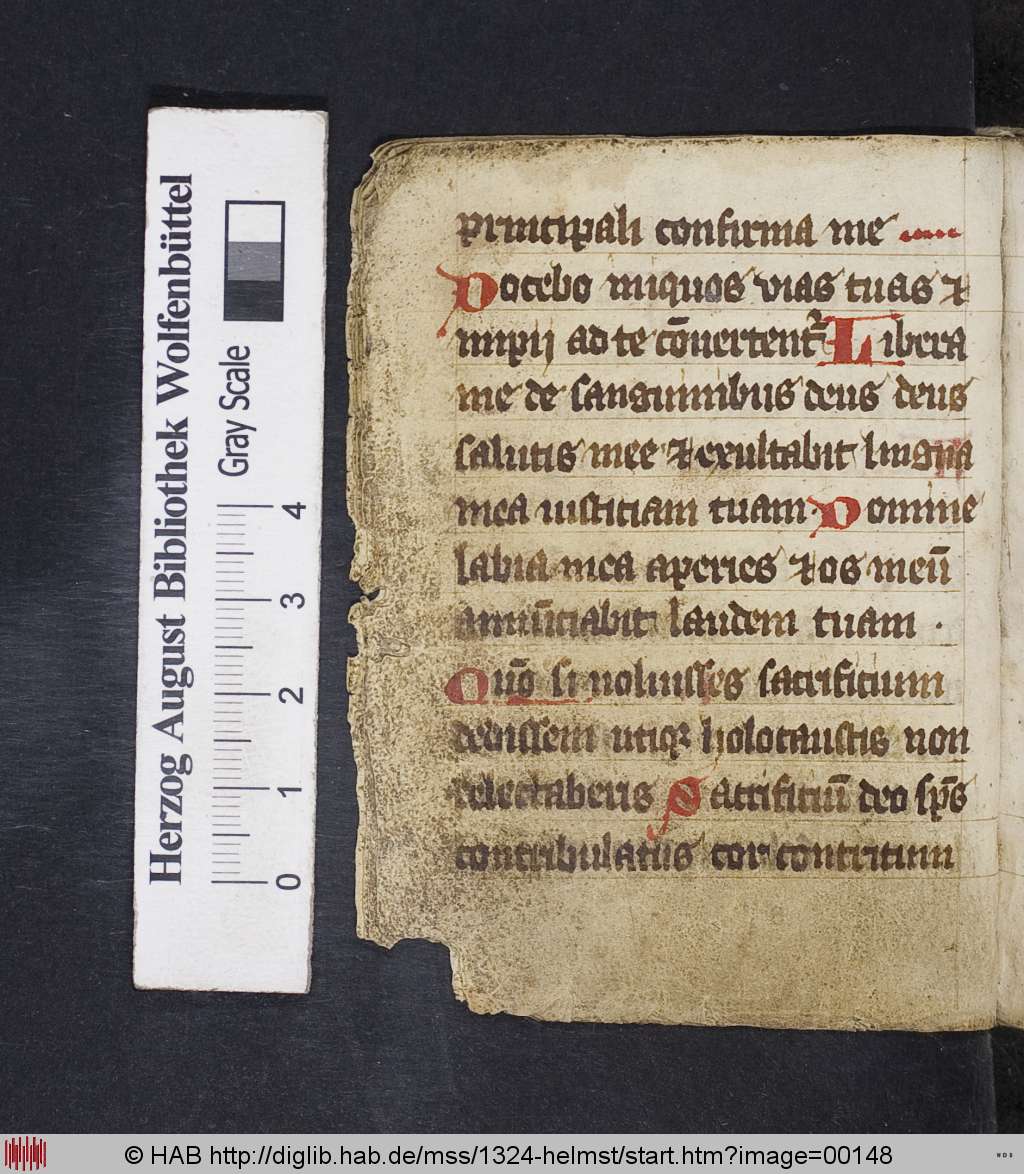 principali confirma me
Docebo iniquos vias tuas ⁊
impij ad te cōuertentᷣ Libera
me de sanguinibus deus deus
salutis mee ⁊ exultabit lingua
mea iusticiam tuam. Domine
labia mea aperies ⁊ os meū
annūciabit laudem tuam .
Quō si uoluisses sacrificium
dedissem utiqꝫ holocaustis non
delectaberis Sacrificiū deo sp̄s
contribulatus cor contritum
Herzog August Bibliothek Wolfenbüttel
Gray Scale
0 1 2 3 4
© HAB http://diglib.hab.de/mss/1324-helmst/start.htm?image=00148
WDB